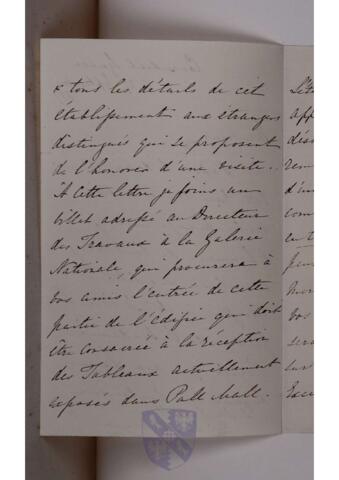 & tous les détails de cet
établissement aux étrangers
distingués qui se proposent
de l'honorer d'une visite.
À cette lettre je joins un
billet adressé au Directeur
des Travaux à la Galerie
Nationale, qui procurera à
vos amis l'entrée de cette
partie de l'édifice qui doit
être consacrée à la réception
des Tableaux actuellement
exposés dans Pall Mall.